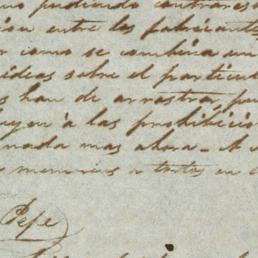 pudiendo contrares
ion entre los fabricant
r como se combina un
ideas sobre el particul
s han de arrostrar, pu
uyen á las prohibicio
nada mas ahora. A
s memorias a todos en
Pepe